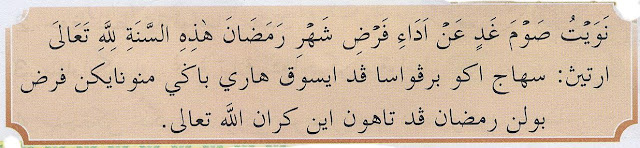 نَوَيْتُ صَوْمَ غَدٍ عَنْ اَدَاءِ فَرْضِ شَهْرِ رَمَضَانَ هٰذِهِ السَّنَةِ لِلّٰهِ تَعَالَى
ارتيڽ: سهاج اكو برڤواسا ڤد ايسوق هاري باݢي منونايكن فرض
بولن رمضان ڤد تاهون اين كران اللّٰه تعالى.